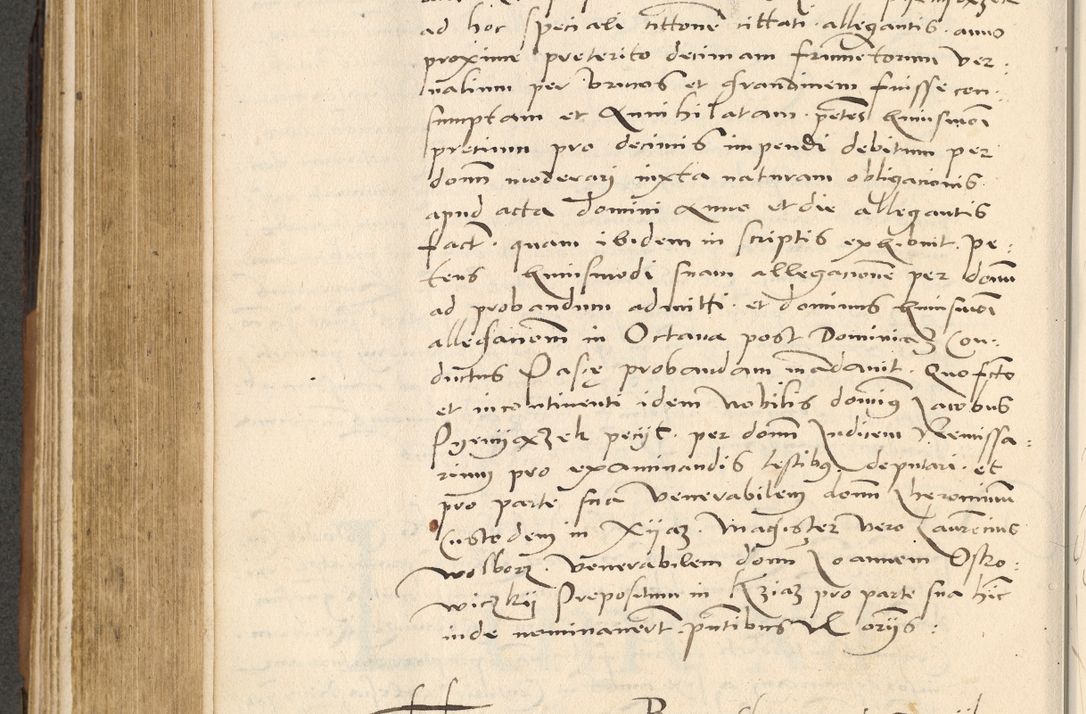 ad hoc speciali cittone cittati allegantis anno
proxime preterito decimam frumetorum ver:
nalium per bruces et grandinem fuisse con:
sumptam et Annihilatam petes huiusmoi
precium pro decimis impendi debitum per
domm moderari iuxta naturam obligacionis
apud acta domini Anno et die allegantis
fact. quam ibidem in scriptis exhibuit. pe:
tens huiusmodi suam allegacione per domm
ad probandum admitti et dominus huiusmoi
allegacionem in Octava post Dominica3 Con:
ductus Pasce probandam madavit. Quo fcto
et incontinenti idem Nobilis domis Jacobus
peciit per domm Judicem
pro examinandis testibus deputari et
pro parte sua Venerabilem domm Iheronimum
Custodem in Xija3. Magister vero Laurencius
Wolborz. Venerabilem domm Joannem Ostro:
wiczkij Prepositum in Kzia3 pro parte sua hic
inde nominavert pntibus Vl oriis: